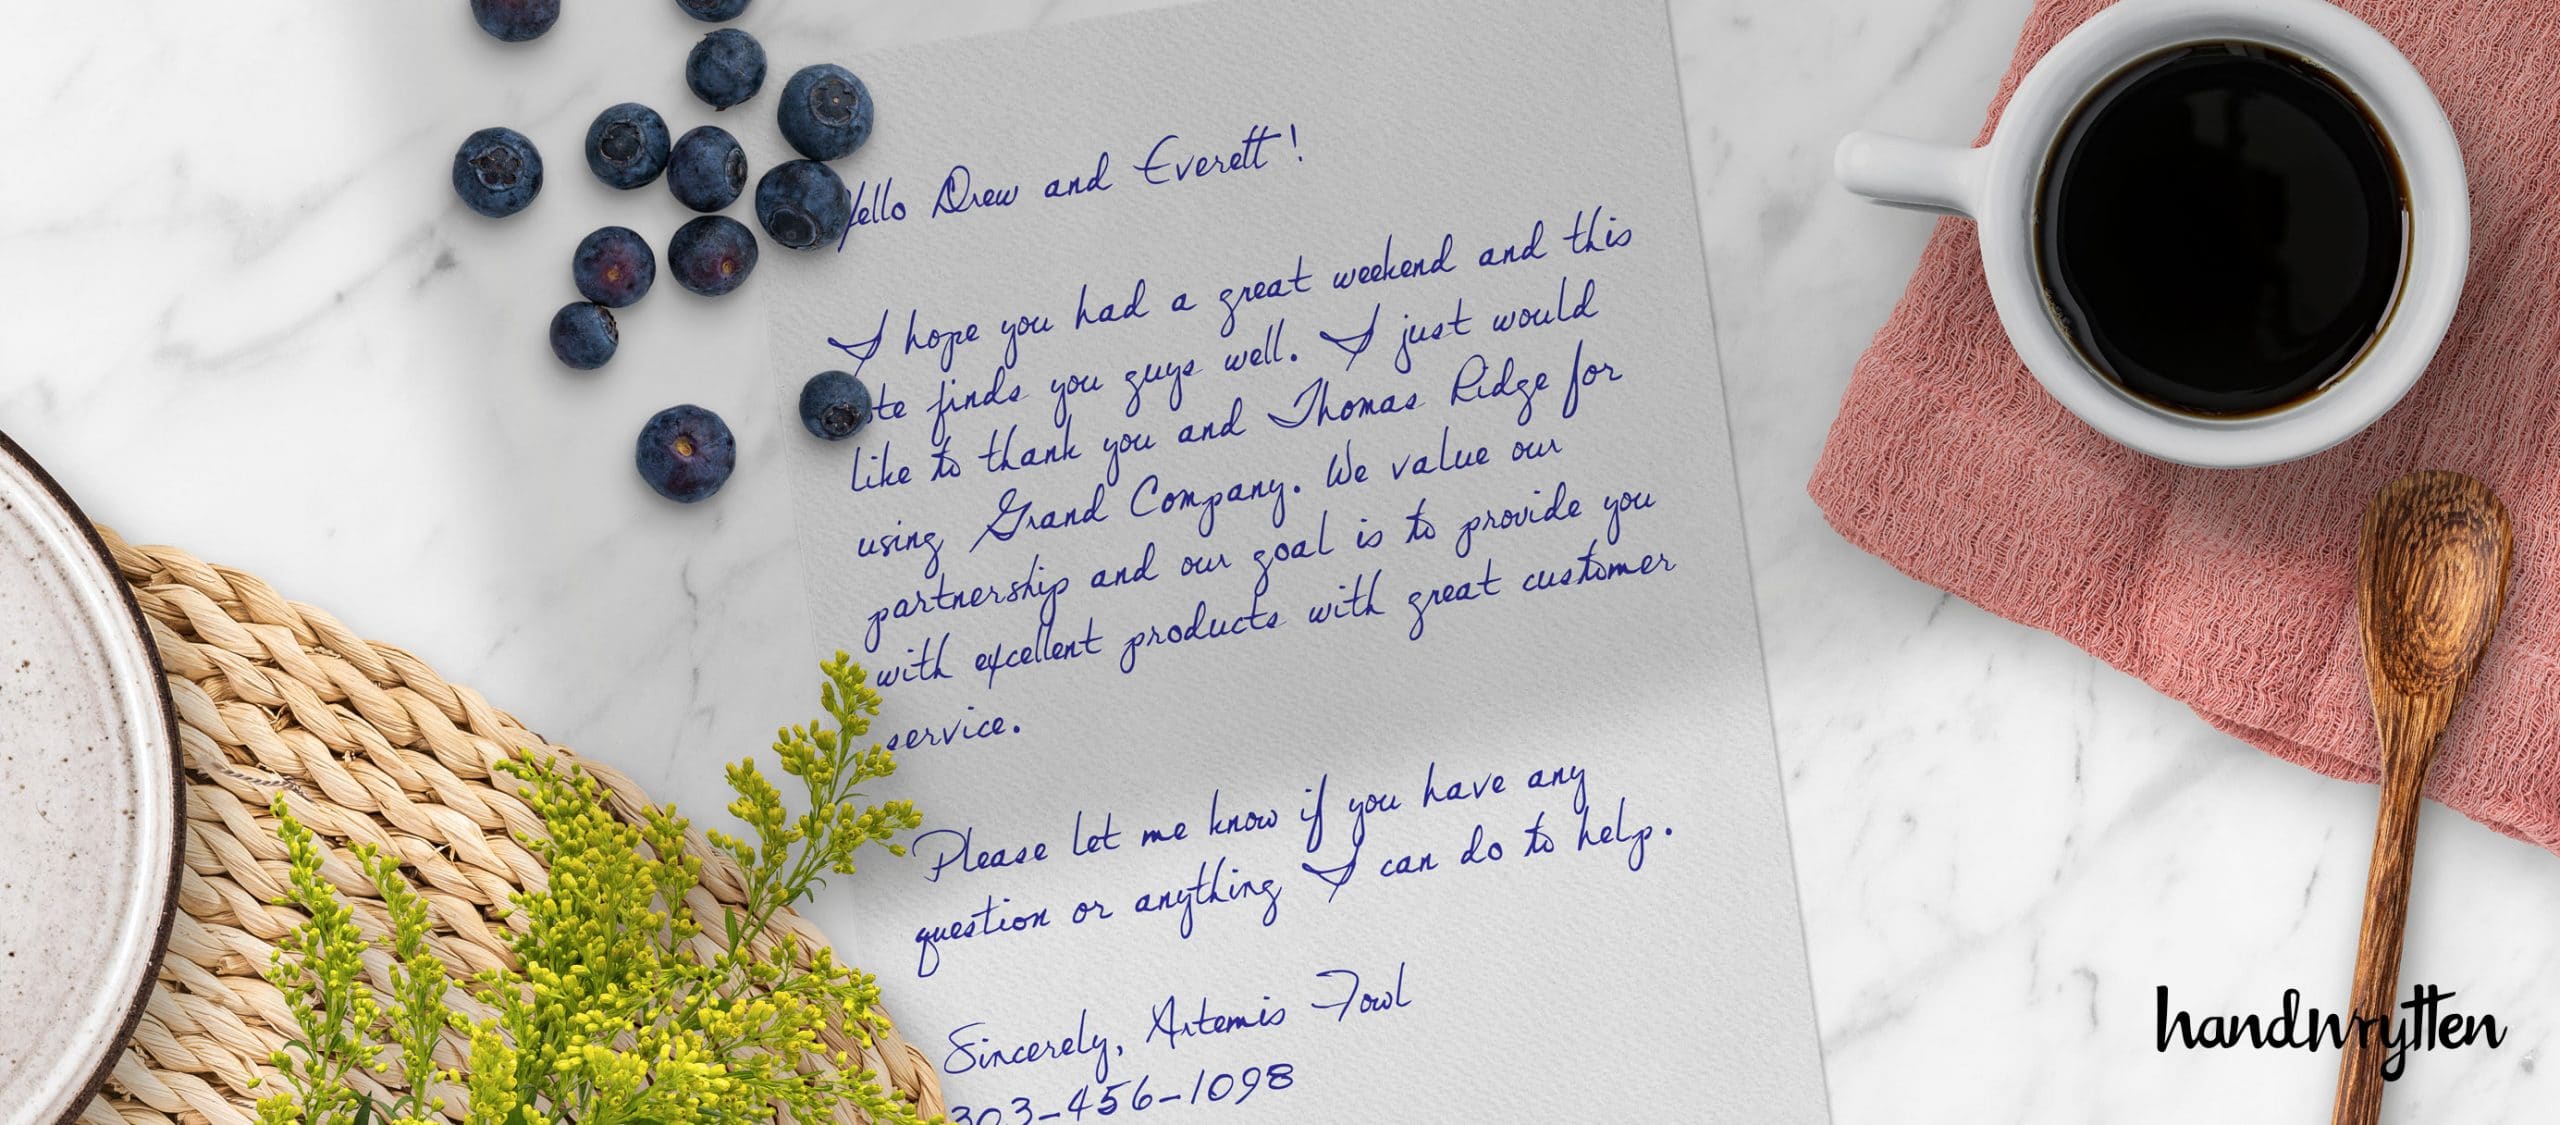 Hello Drew and Everett!
I hope you had a great weekend and this
te finds you guys well. I just would
like to thank you and Thomas Ridge for
using Grand Company. We value our
partnership and our goal is to provide you
with excellent products with great customer
service.
Please let me know if you have any
question or anything I can do to help.
Sincerely, Artemis Fowl
303-456-1098
handwrytten